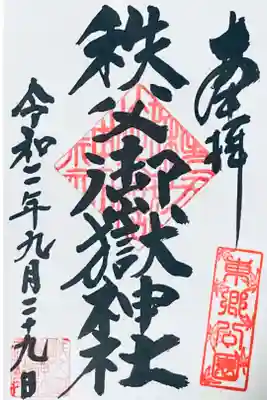 奉拝
秩父御嶽神社
東郷公園
令和二年九月二十九日